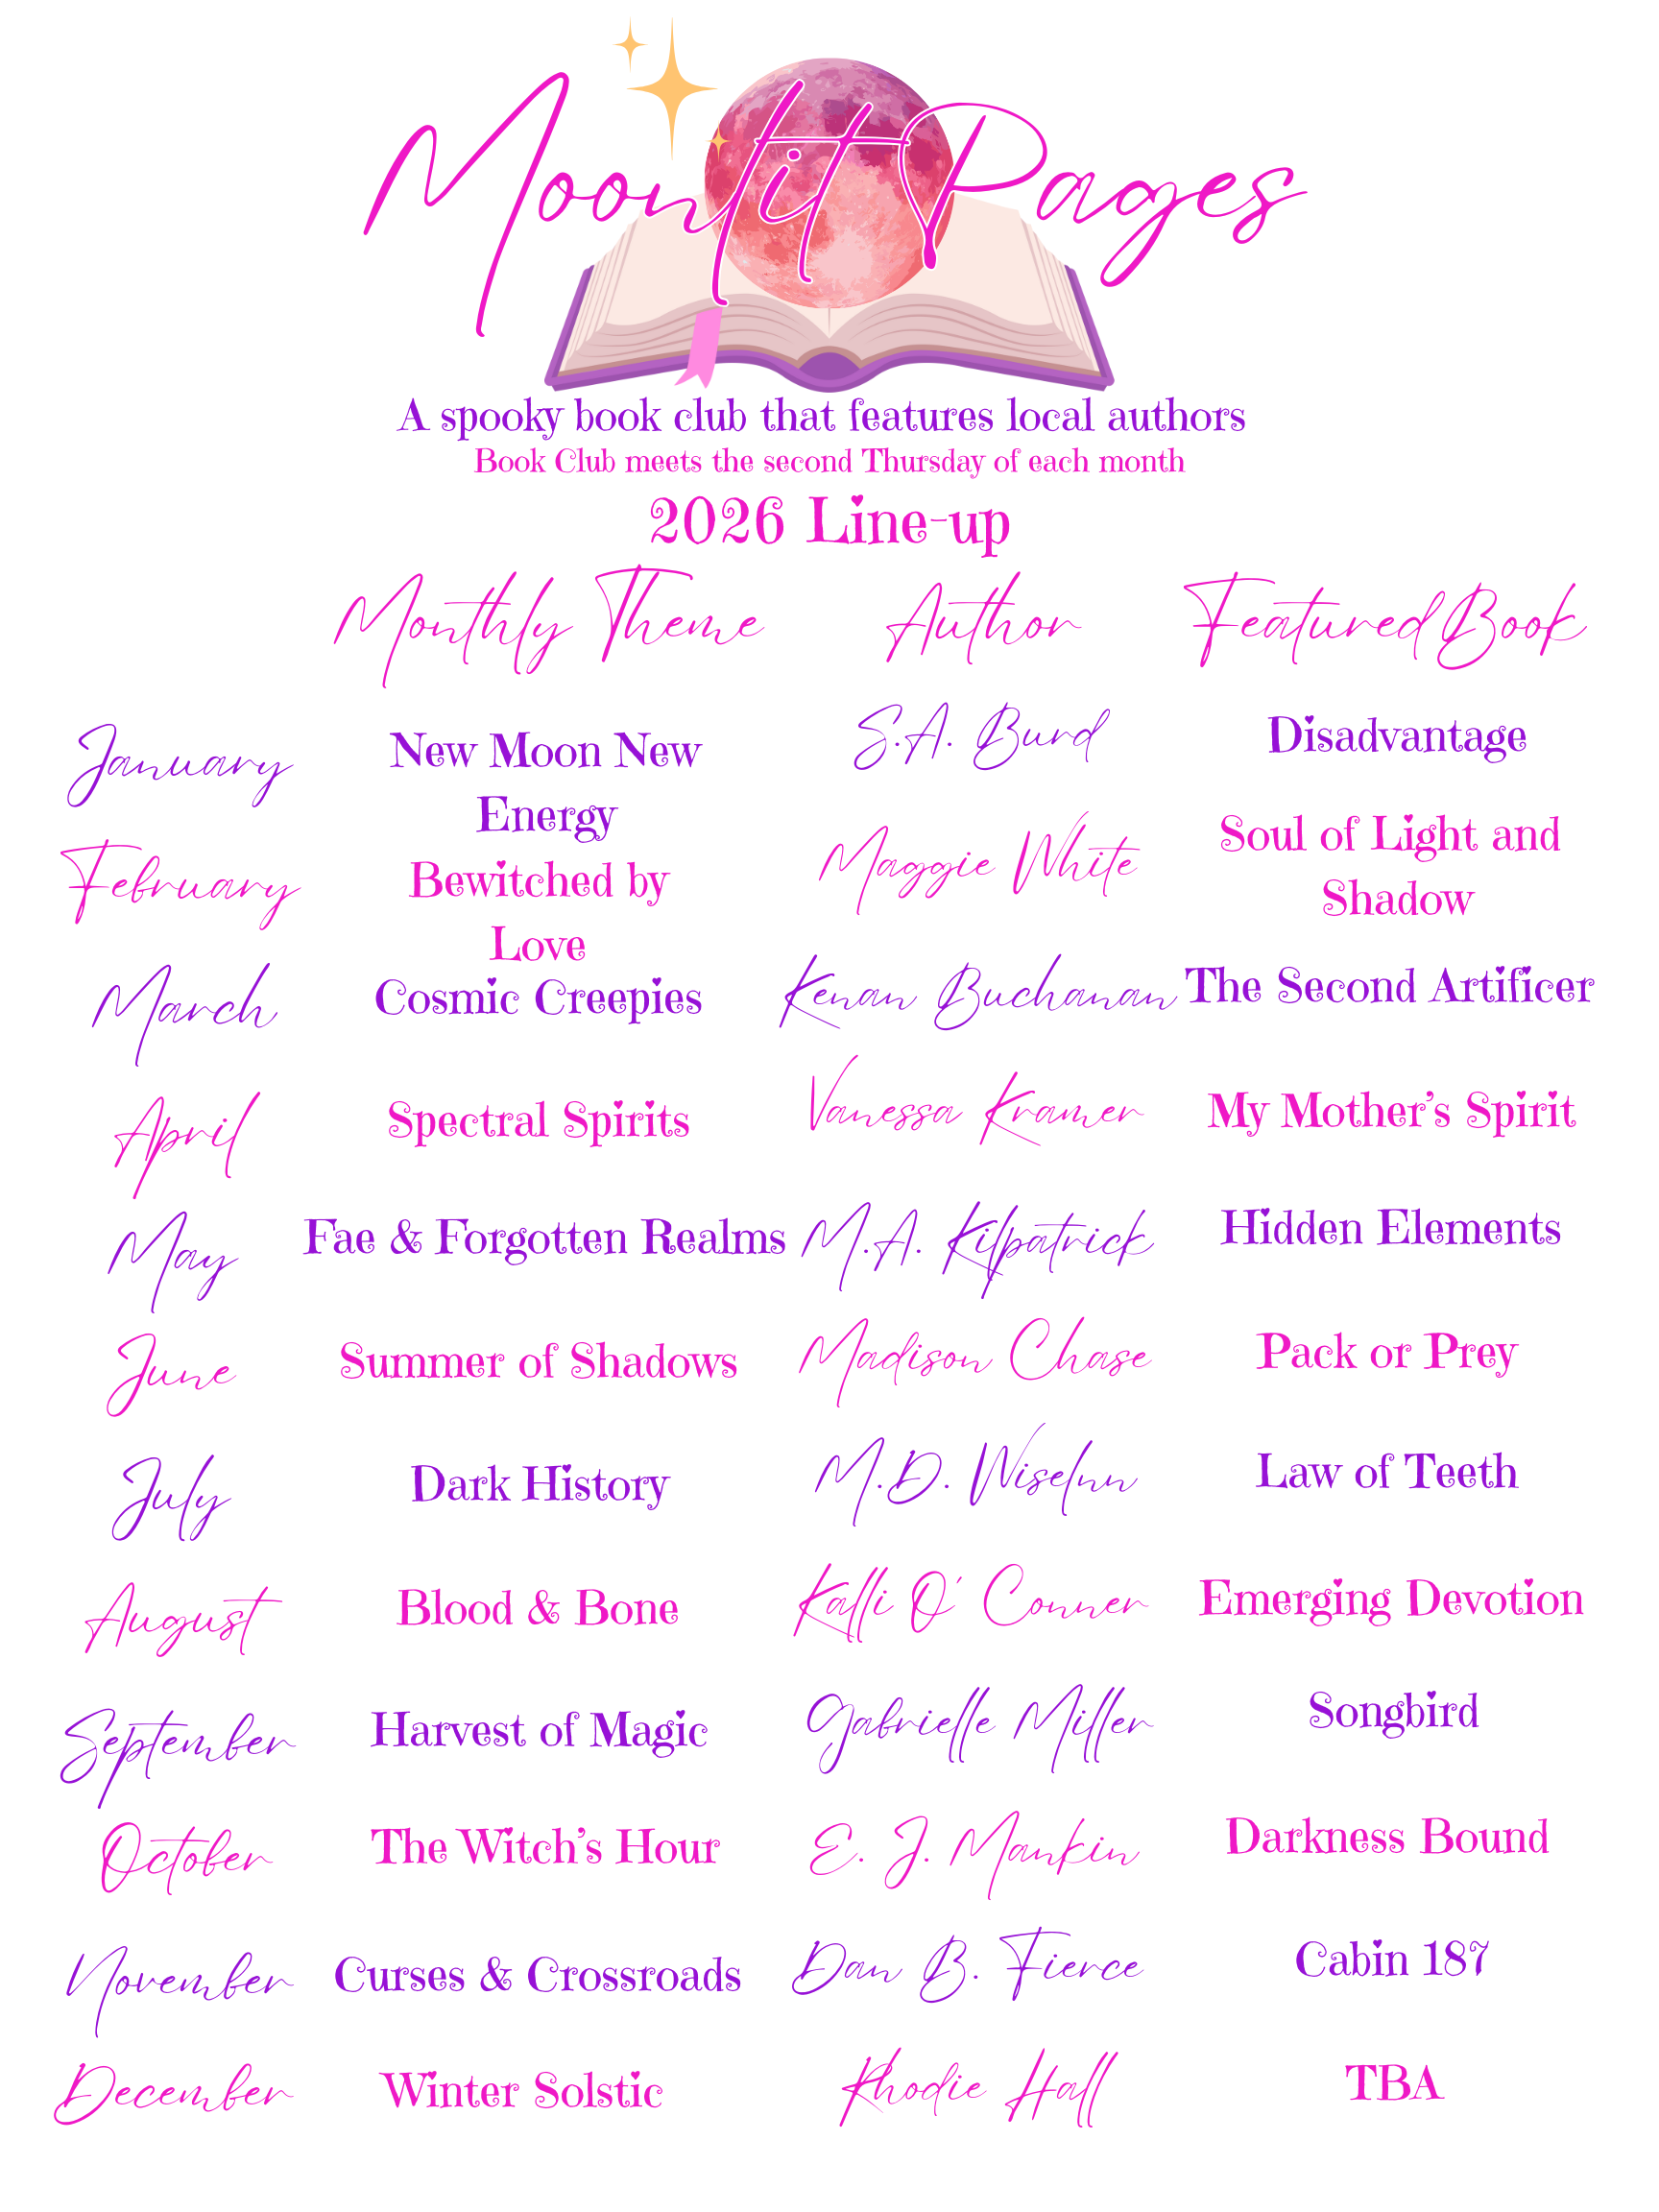 Moonlit Pages
A spooky book club that features local authors
Book Club meets the second Thursday of each month
2026 Line-up
Monthly Theme Author Featured Book
January New Moon New Energy S.A. Burd Disadvantage
February Bewitched by Love Maggie White Soul of Light and Shadow
March Cosmic Creepies Kenan Buchanan The Second Artificer
April Spectral Spirits Vanessa Kramer My Mother's Spirit
May Fae & Forgotten Realms M.A. Kilpatrick Hidden Elements
June Summer of Shadows Madison Chase Pack or Prey
July Dark History M.D. Law of Teeth
August Blood & Bone Kalli O' Conner Emerging Devotion
September Harvest of Magic Gabrielle Miller Songbird
October The Witch's Hour E. J. Mankin Darkness Bound
November Curses & Crossroads Dan B. Fierce Cabin 187
December Winter Solstic Rhodie Hall TBA